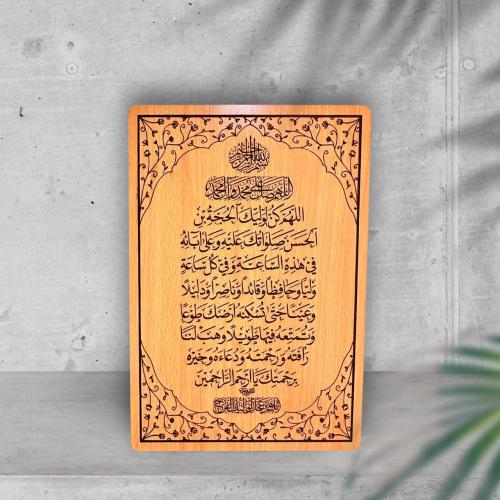 بسم الله الرحمن الرحیم
اللهم صل علی محمد و آل محمد
اللّهُمَّ كُنْ لِوَلِيِّكَ الْحُجَّةِ بْنِ
الْحَسَنِ صَلَواتُكَ عَلَيْهِ وَعَلى آبائِهِ
فِي هذِهِ السَّاعَةِ وَفِي كُلِّ سَاعَةٍ
وَلِيّاً وَحافِظاً وَقائِداً وَناصِراً وَدَلِيلاً
وَعَيْناً حَتّى تُسْكِنَهُ أَرْضَكَ طَوْعاً
وَتُمَتِّعَهُ فِيها طَوِيلاً وَهَبْ لَنا
رَأْفَتَهُ وَرَحْمَتَهُ وَدُعاءَهُ وَخَيْرَهُ
بِرَحْمَتِكَ يا أَرْحَمَ الرَّاحِمِينَ